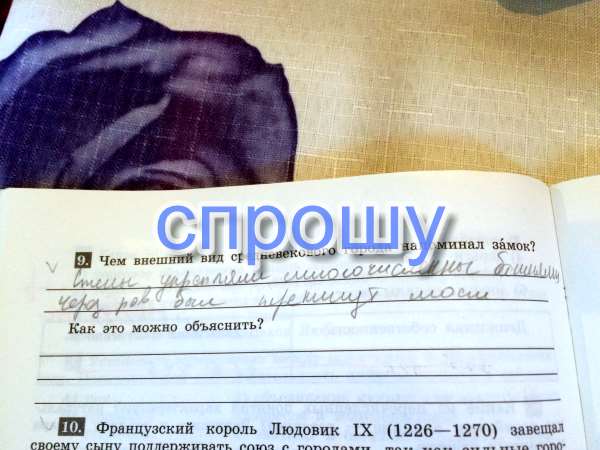 спрошу
9. Чем внешний вид средневекового города напоминал за́мок?
V Стены укрепляли многочисленные башнями
через ров был перекинут мост
Как это можно объяснить?
10. Французский король Людовик IX (1226—1270) завещал
своему сыну поддерживать союз с городами, так как сильные горо-